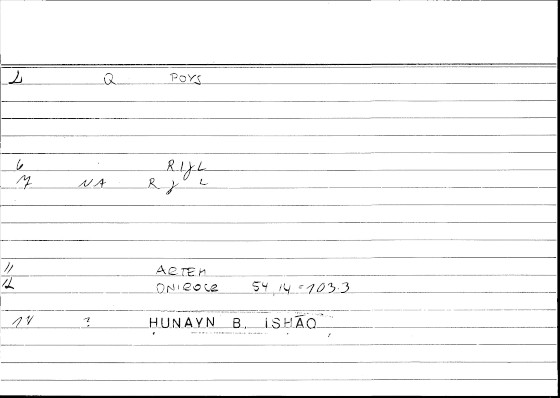 1 Q POYS
6 RIJL
7 NA R J L
11 ARTEM
12 ONIROCR 54,14 = 103.3
14 ? HUNAYN B. ISHAQ